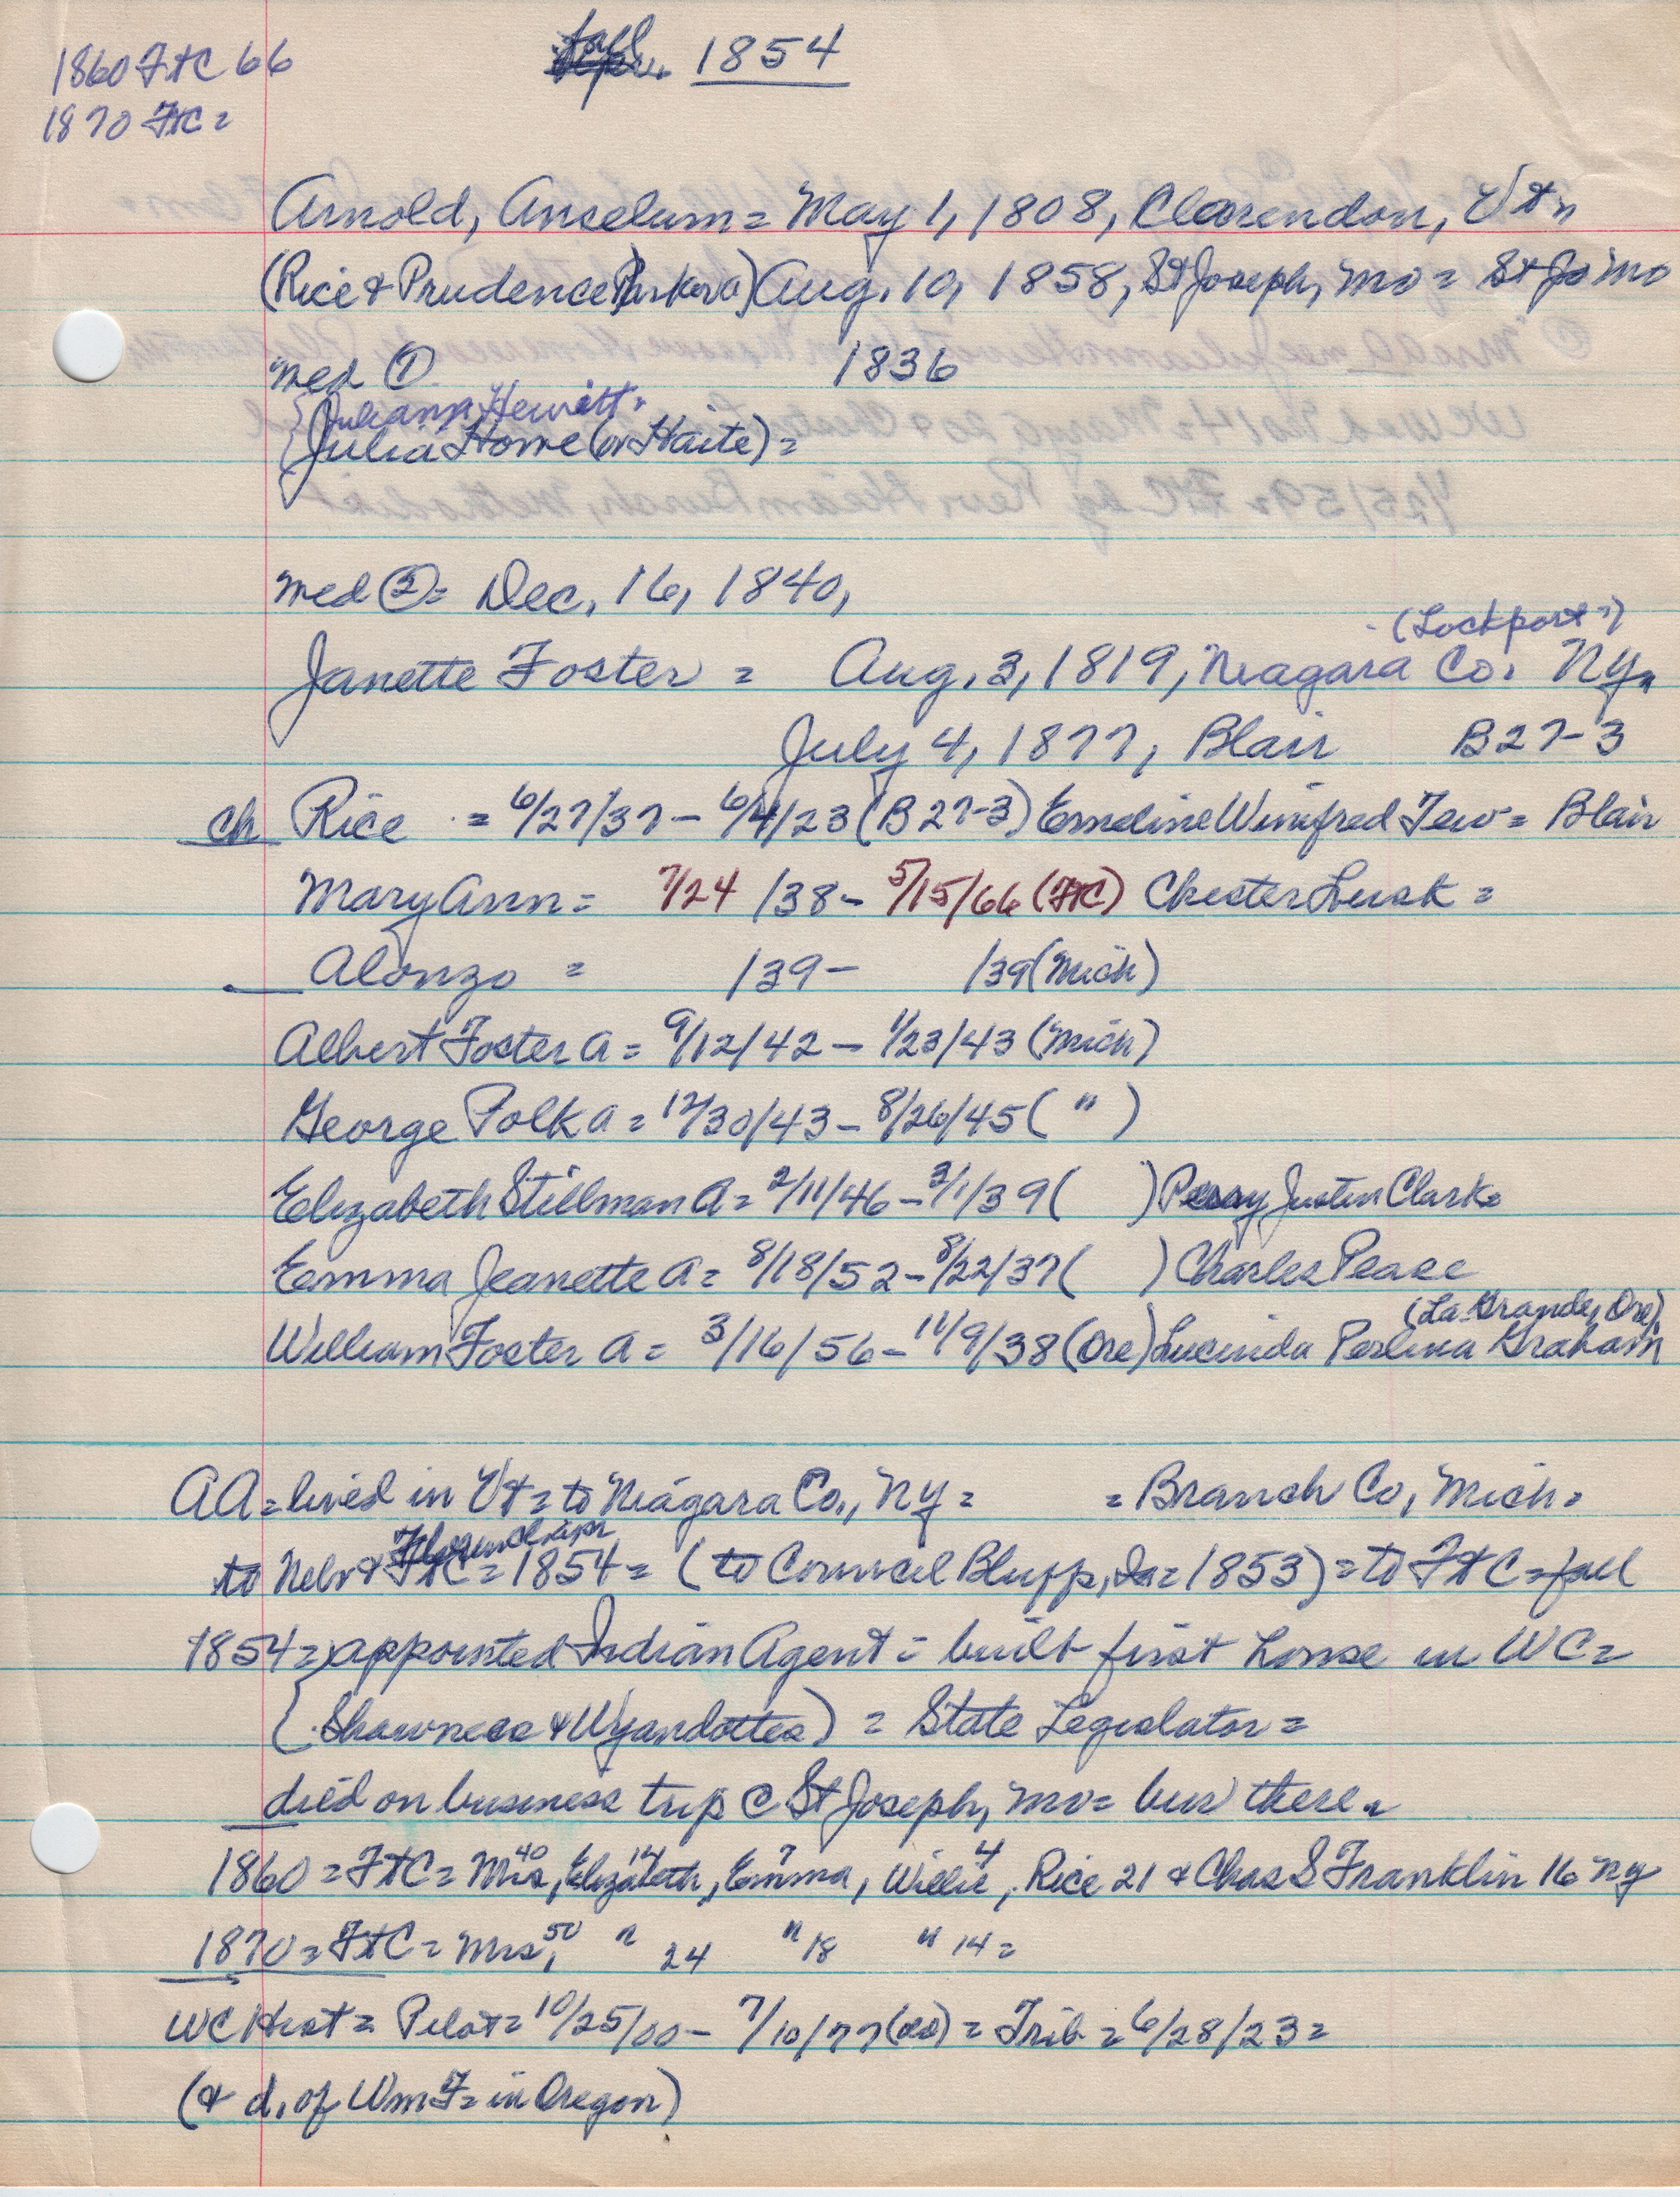 1860 FtC 66
1870 FtC =
fall 1854
Arnold, Anselum = May 1, 1808, Clarendon, Vt =
(Rice & Prudence Parker A) Aug. 10, 1858, St Joseph, Mo = St Jo Mo
med ① 1836
{Juliana Hewitt =
{Julia Home (or Haite) =
med ② = Dec. 16, 1840,
(Lockport?)
Janette Foster = Aug. 3, 1819, Niagara Co. Ny =
July 4, 1877, Blair B27-3
ch Rice = 6/27/37 - 6/4/23 (B27-3) Emeline Winifred Tew = Blair
Mary Ann = 7/24 /38 - 5/15/66 (FtC) Chester Lusk =
Alonzo = /39 - /39 (Mich)
Albert Foster A = 9/12/42 - 1/23/43 (Mich)
George Polk A = 12/30/43 - 8/26/45 ( " )
Elizabeth Stillman A = 2/11/46 - 3/1/39 ( ) Perry Justin Clark =
Emma Jeanette A = 8/18/52 - 8/22/37 ( ) Charles Pease
(La Grande, Ore)
William Foster A = 3/16/56 - 11/9/38 (Ore) Lucinda Perlina Graham
AA = lived in Vt = to Niagara Co., Ny = = Branch Co, Mich =
to Nebr & FtC = 1854 = (to Council Bluffs, Ia = 1853) = to FtC = fall
1854 = appointed Indian Agent = built first house in WC =
(Shawnees & Wyandottes) = State Legislator =
died on business trip @ St Joseph, Mo = bur there =
1860 = FtC = Mrs 40, Elizabeth 14, Emma 7, Willie 4, Rice 21 & Chas S Franklin 16 Ny
1870 = FtC = Mrs 50, " 24 " 18 " 14 =
WC Hist = Pilot = 10/25/00 - 7/10/77 = Trib = 6/28/23 =
(& d. of Wm F = in Oregon)